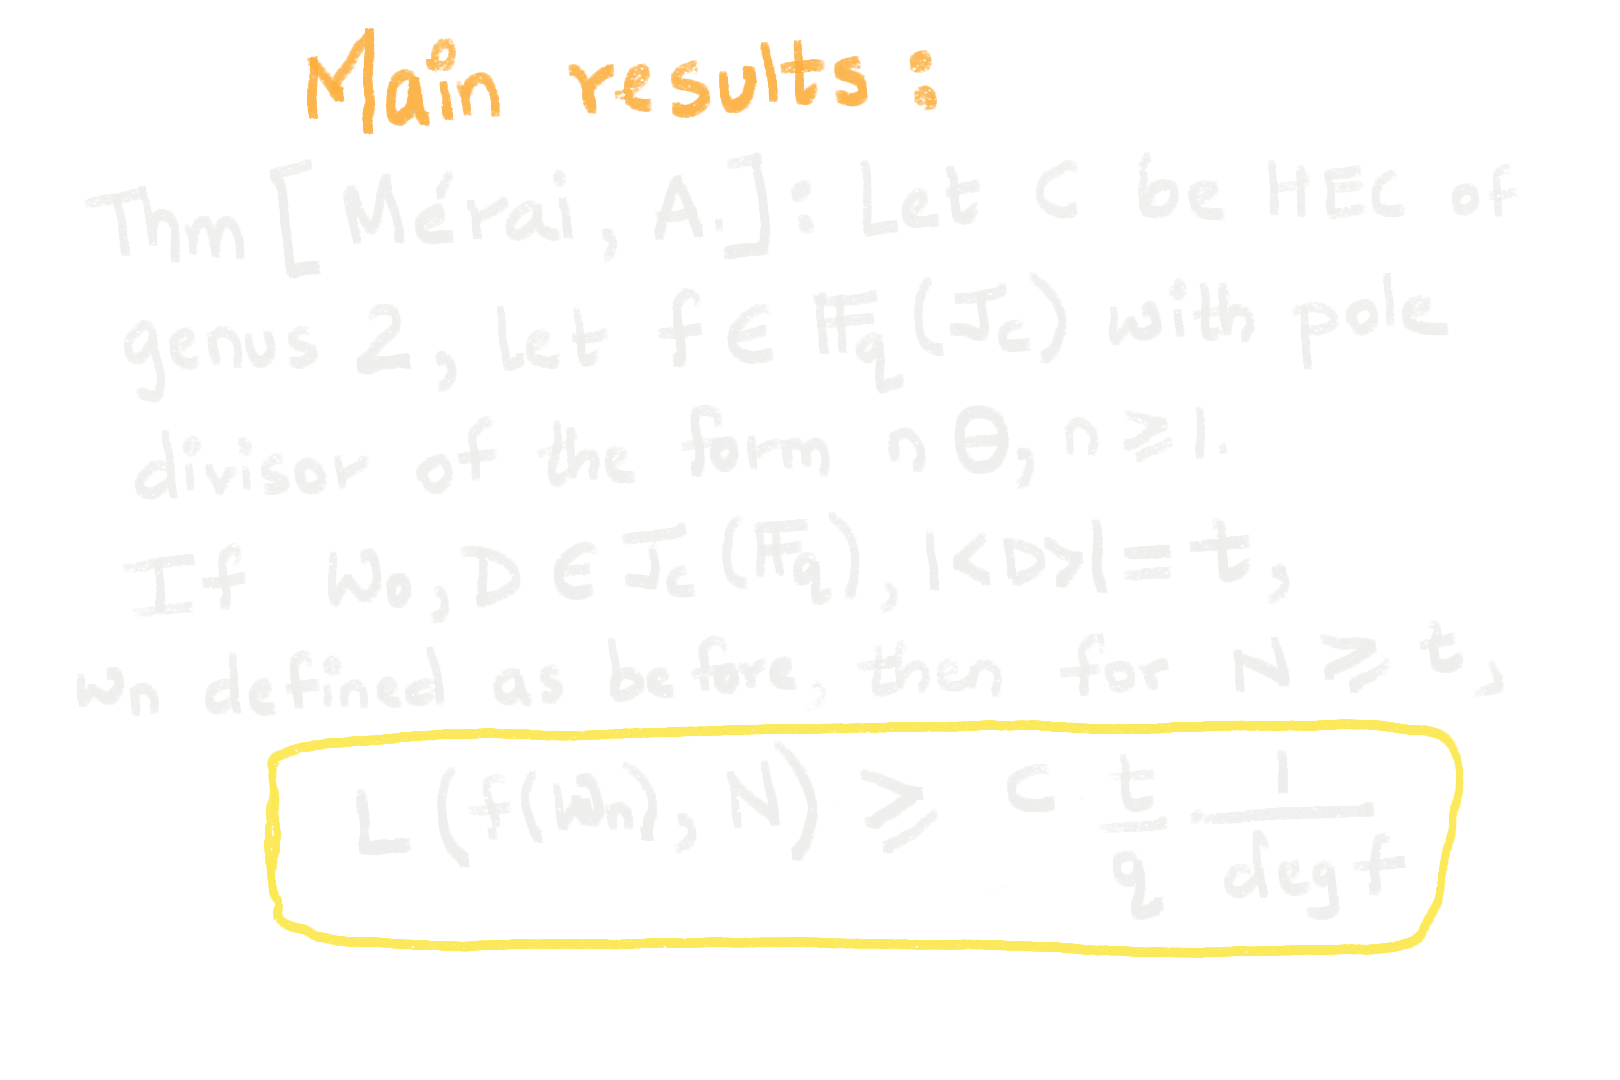 Main results:
Thm [Mérai, A.]: Let C be HEC of
genus 2, let f ∈ 𝔽q(Jc) with pole
divisor of the form nΘ, n ⩾ 1.
If W₀, D ∈ Jc(𝔽q), |<D>| = t,
Wn defined as before, then for N ⩾ t,
L(f(Wn), N) ⩾ c t/q 1/deg f